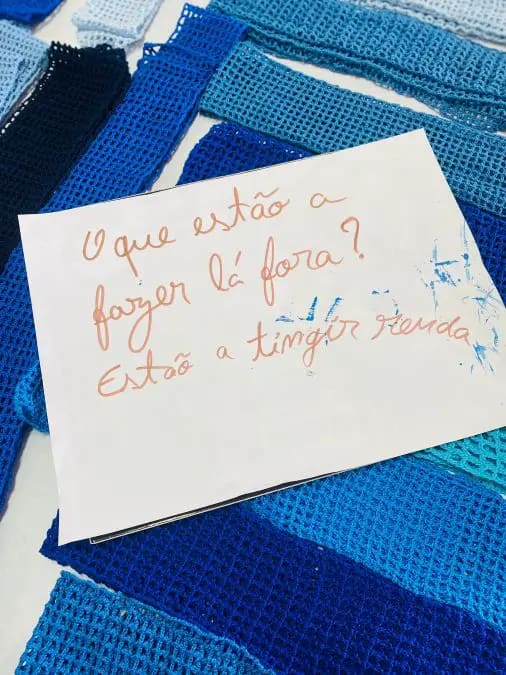 O que estão a
fazer lá fora?
Estão a tingir renda